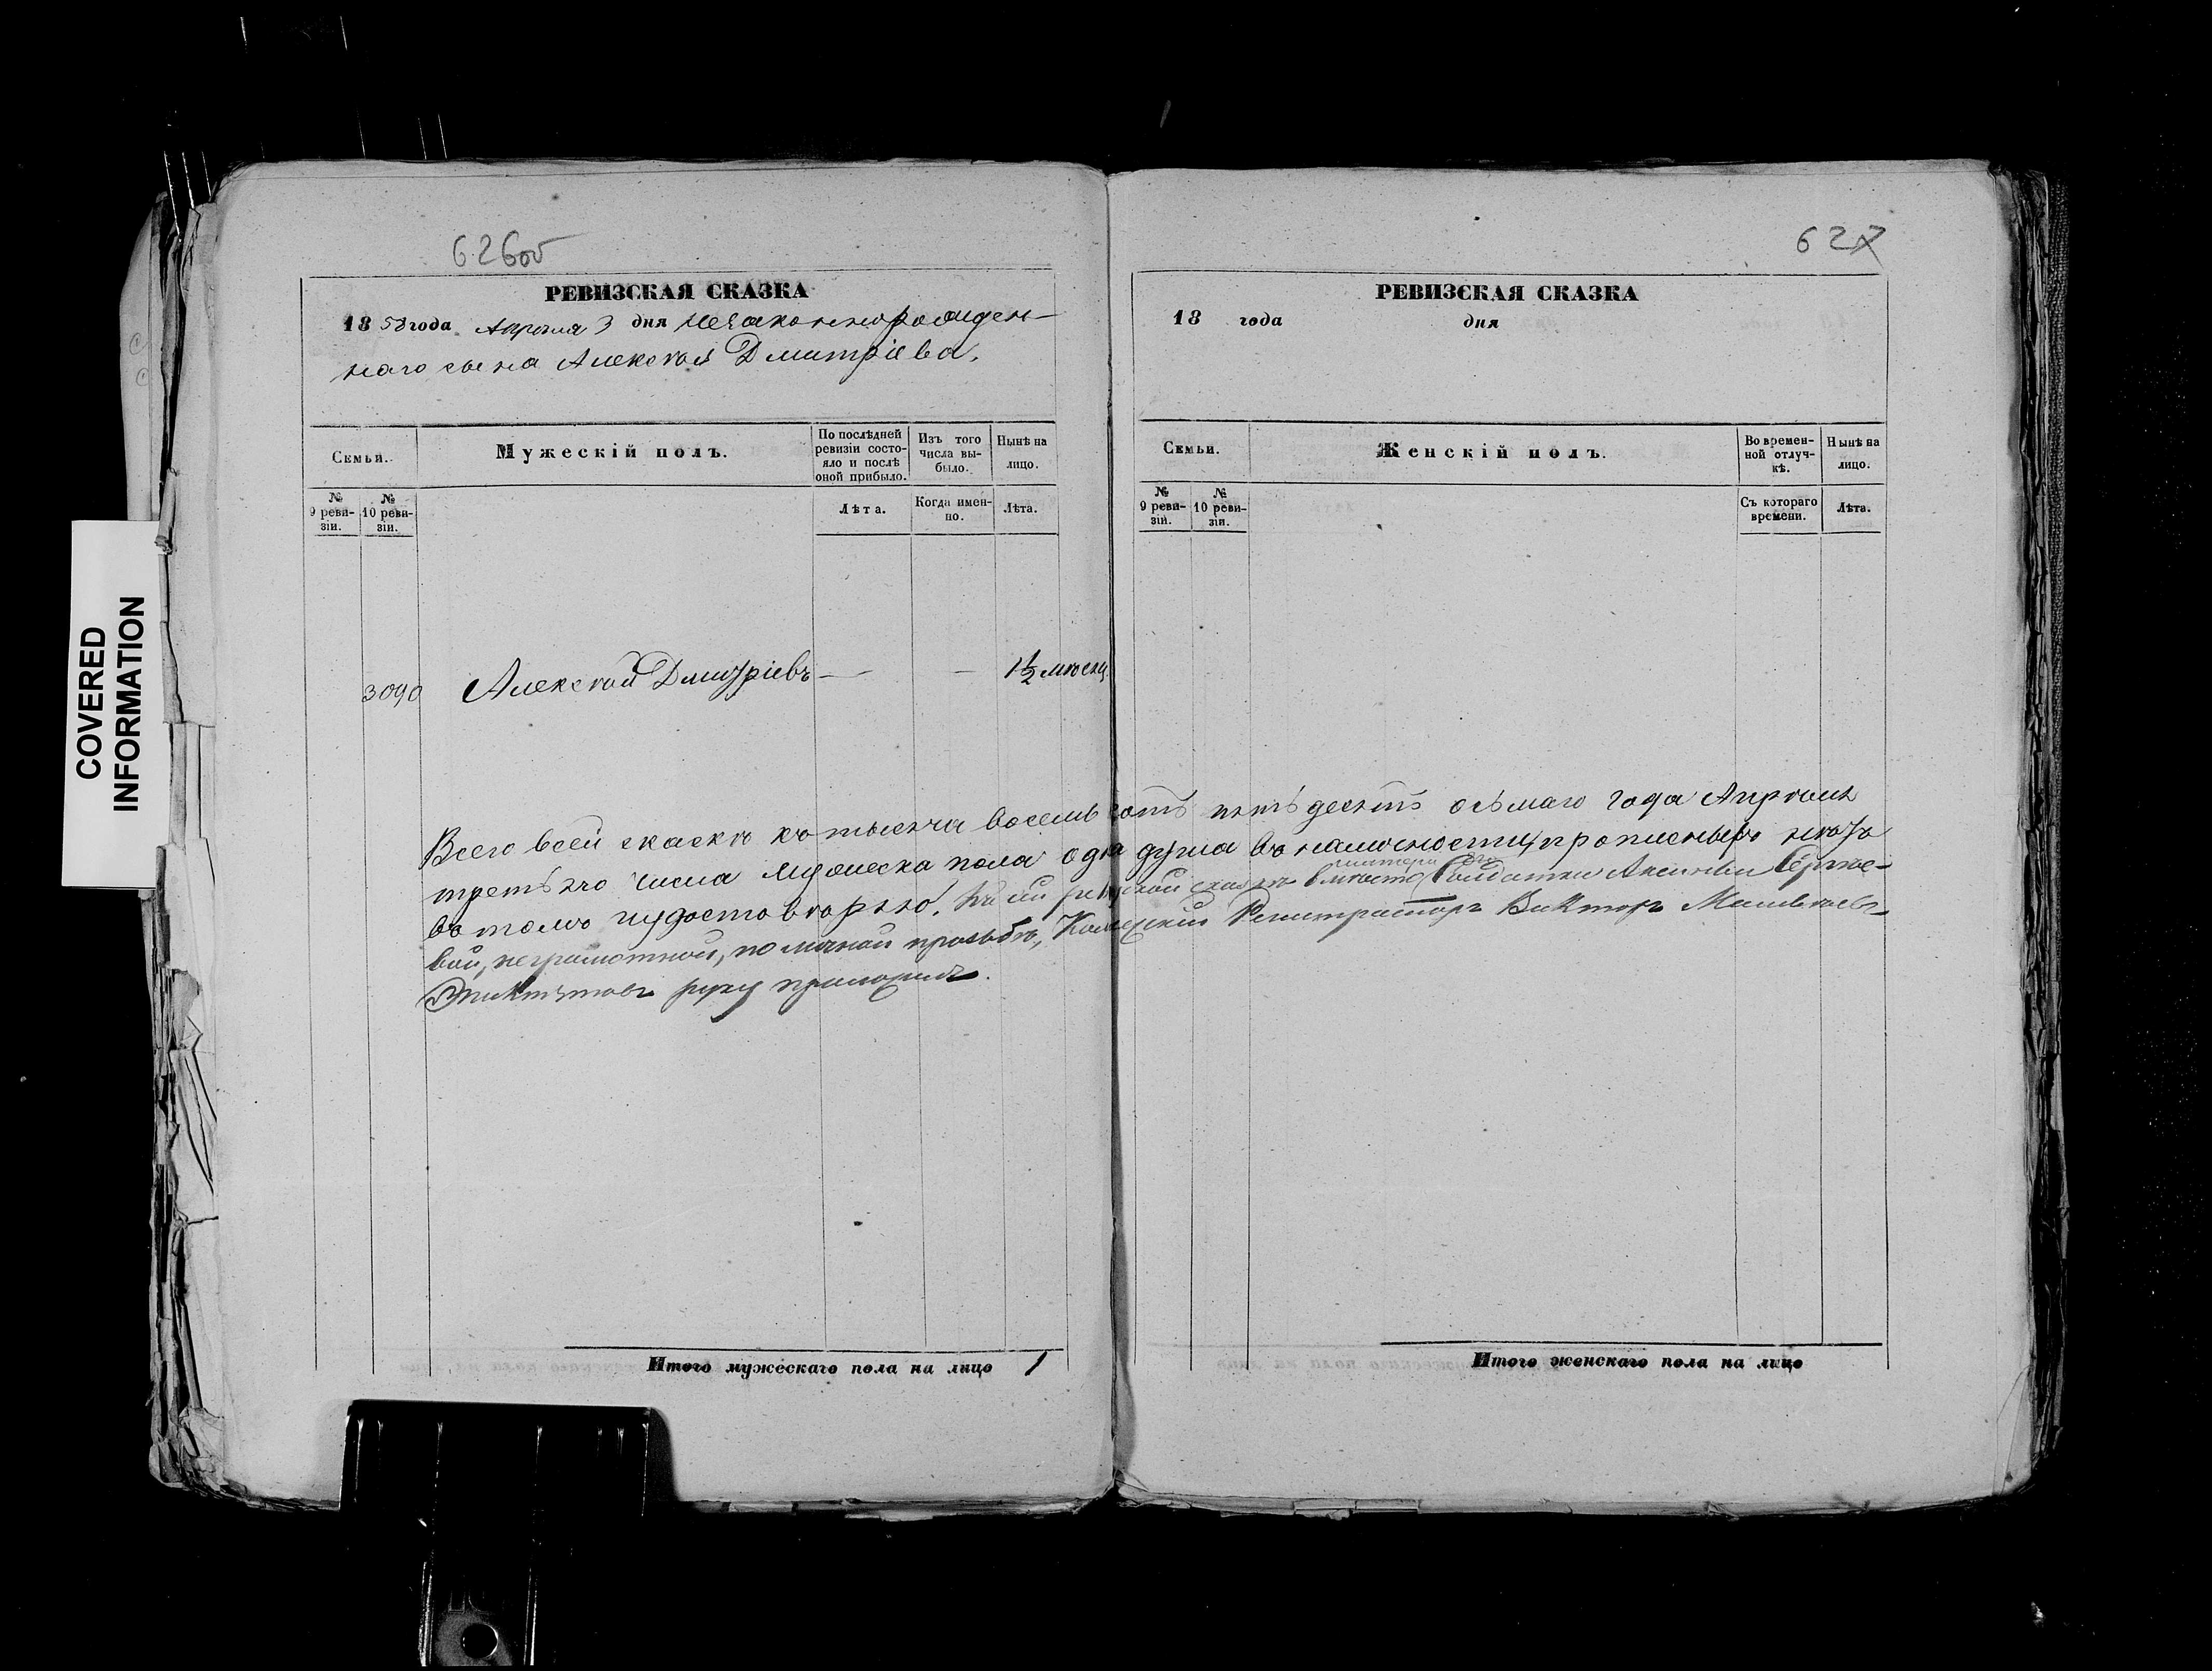 626об
РЕВИЗСКАЯ СКАЗКА
18 58 года Апреля 3 дня незаконнорожден-
наго сына Алексѣя Дмитріева.
Семьи.
Мужескій полъ.
По послѣдней ревизіи состояло и послѣ оной прибыло.
Изъ того числа выбыло.
Нынѣ на лицо.
№ 9 ревизіи.
№ 10 ревизіи.
Лѣта.
Когда именно.
Лѣта.
3090 Алексѣй Дмитріевъ — — 1½ мѣсяц.
Всего всей сказкѣ къ тысяча восемь сотъ пятьдесятъ осьмаго года Апрѣля
третьяго числа мужеска пола одна душа въ наличности, прописныхъ нѣтъ
въ томъ и удостовѣряю. Къ сей ревизской сказкѣ вмѣсто матери его Солдатки Аксиньи Сергѣе-
вой, неграмотной, по личной просьбѣ, Коллежскій Регистраторъ Викторъ Матвѣевъ
руку приложилъ.
Итого мужескаго пола на лицо 1
COVERED
INFORMATION
627
РЕВИЗСКАЯ СКАЗКА
18 года дня
Семьи.
Женскій полъ.
Во временной отлучкѣ.
Нынѣ на лицо.
№ 9 ревизіи.
№ 10 ревизіи.
Съ котораго времени.
Лѣта.
Итого женскаго пола на лицо